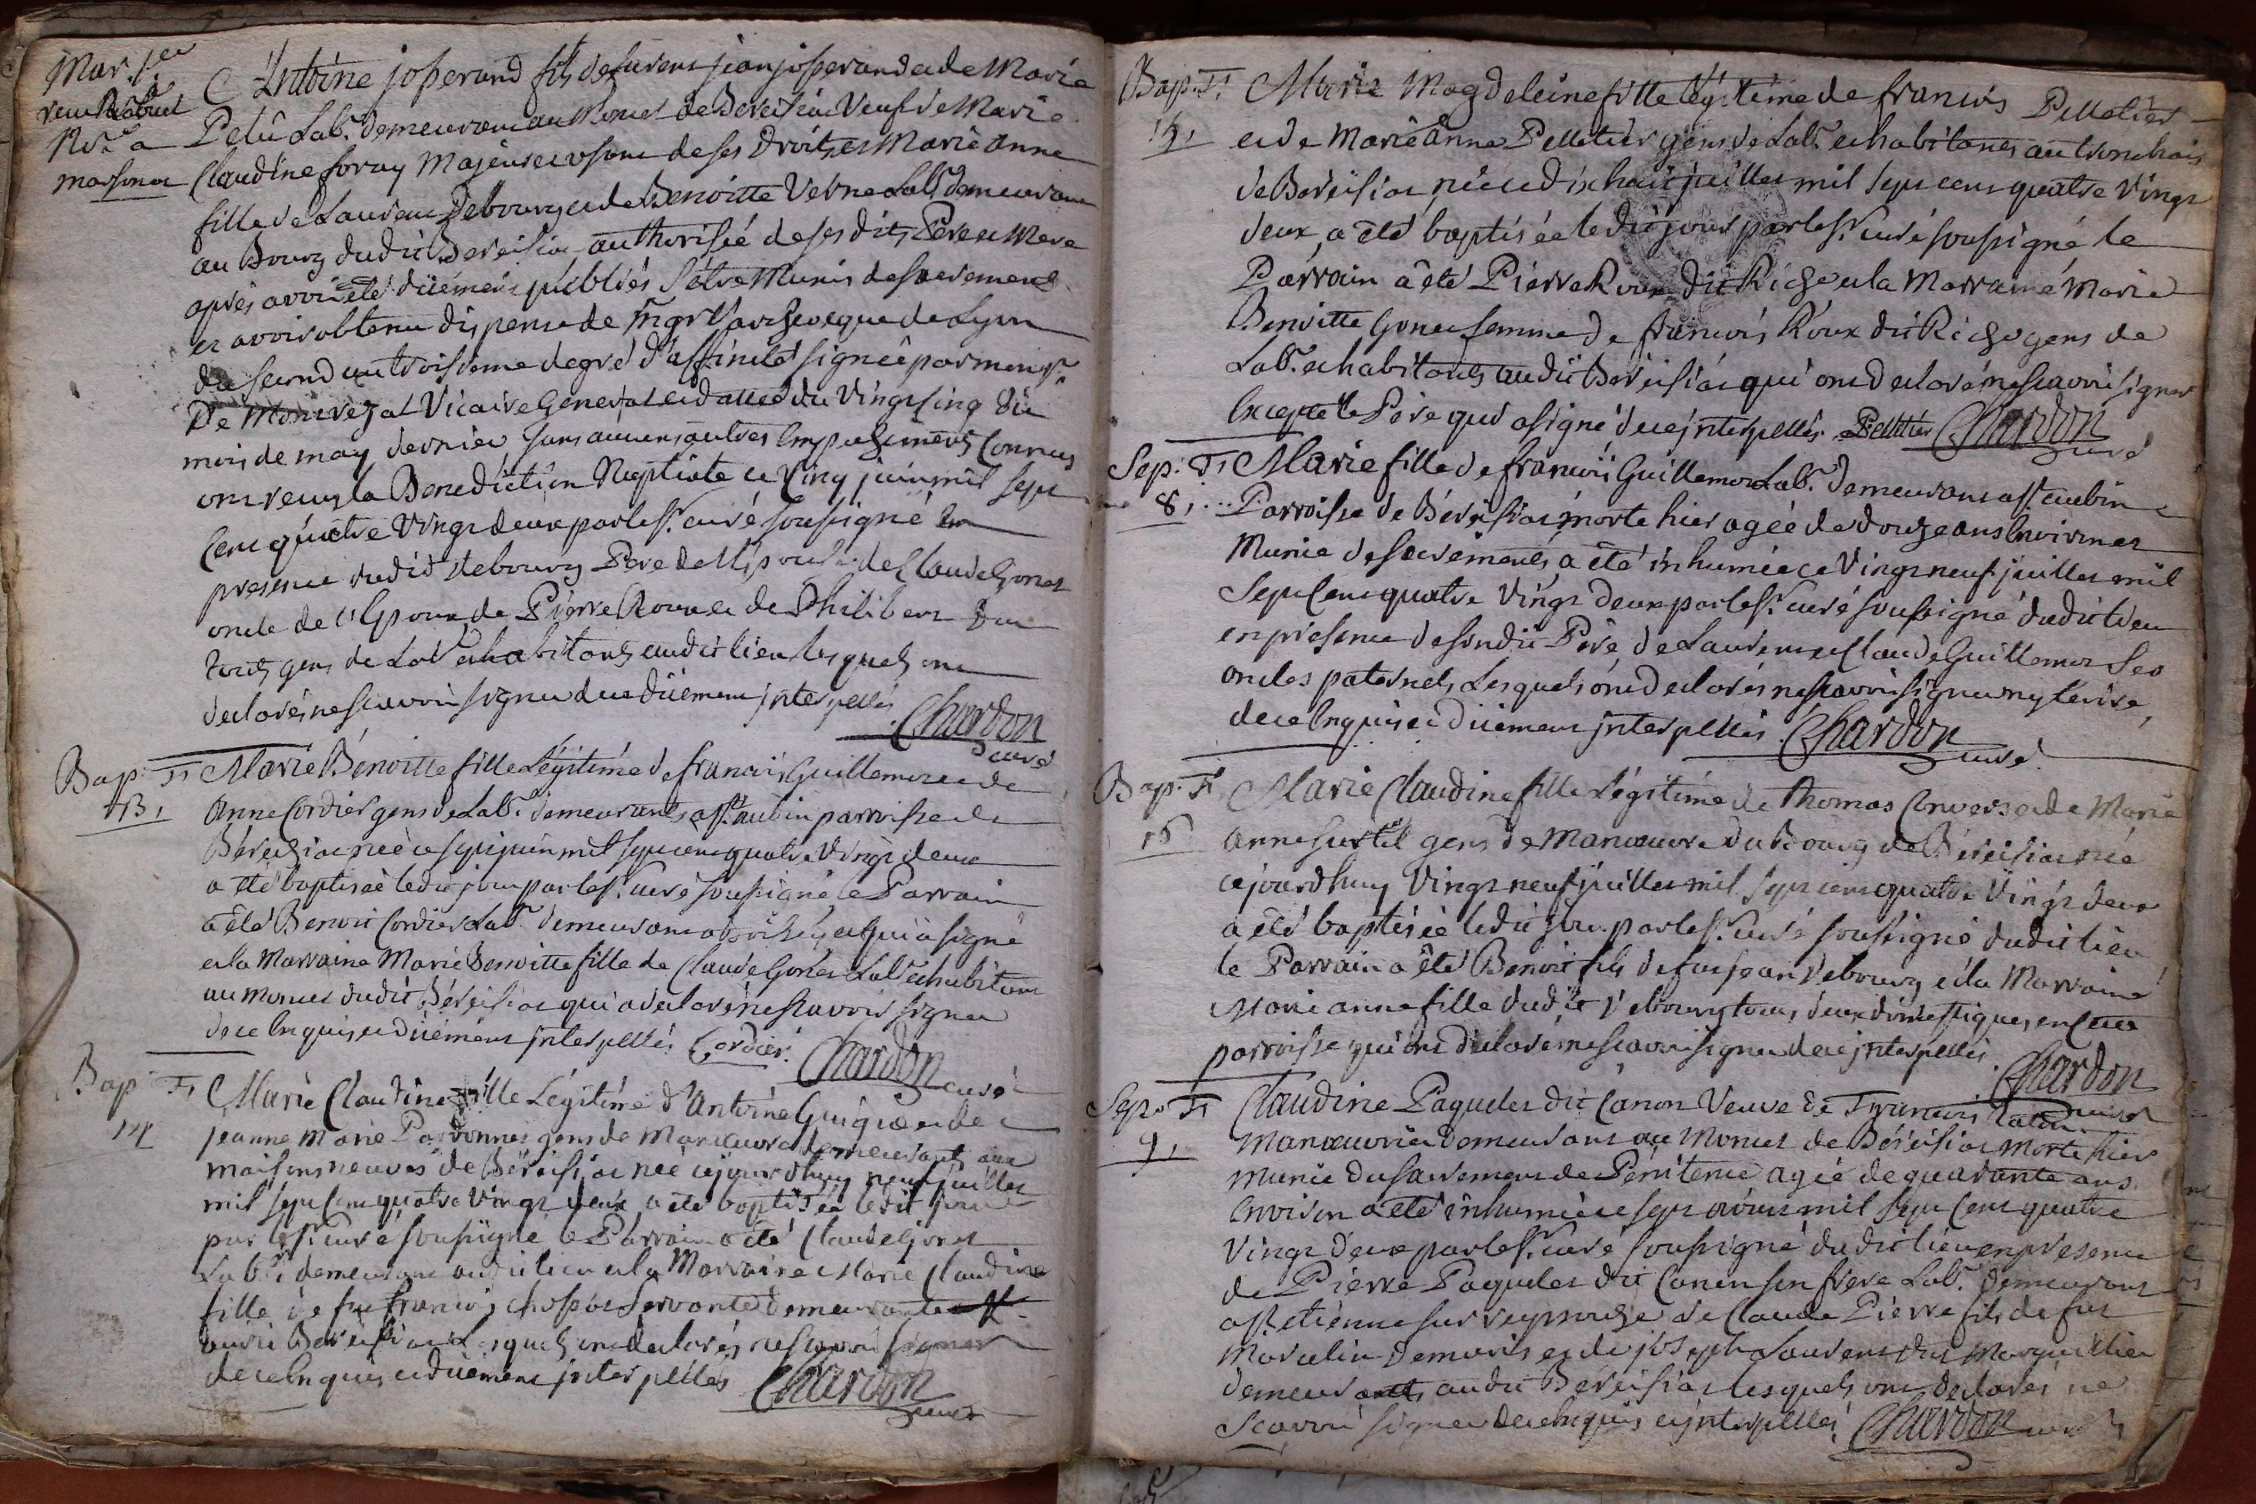 Mar. 1er
Antoine josserand fils de Laurens jean josserand et de Marie
Petû Labr. demeurant au Monuet de Béreisiac Veuf de Marie
Claudine foray Majeure usant de ses Droits, et Marie Anne
fille de Laurent Debourg et de Benoitte Verne Labrs. demeurans
au Bourg dudit Bereisiac, authorisée de ses dits Pere et Mere
après avoir été düement publiés s'être Munis des Sacremens
et avoir obtenu dispense de mgr. l'archeveque de Lyon
du second au troisieme degré d'affinité signée par monsr.
De Montregal Vicaire General en datte du Vingt cinq du
mois de may dernier sans aucuns autres Empechemens Connus
ont reçu la Benediction Nuptiale ce Cinq juin mil sept
Cent quatre Vingt deux par le Sr. curé soussigné En
presence dudit debourg Pere de l'Epouse, de Claude Gonet
oncle de l'Epoux, de Pierre Roux et de Philibert
tous gens de Labr. et habitants audit lieu lesquels ont
declarés ne scavoir signer de ce düement interpellés
Chardon
curé
Bap: F.
13,
Marie Benoitte fille Légitime de francois Guillemot et de
Anne Cordier gens de Labr. demeurants a st. aubin parroisse de
Béreisiac née ce sept juin mil sept cent quatre Vingt deux
a été baptisée ledit jour par le Sr. curé soussigné, le Parrain
a été Benoit Cordier Labr. demeurant a et qui a signé
et la Marraine Marie Benoitte fille de Claude Gonet Labr. et habitant
au Monuet dudit Béreisiac qui a declaré ne scavoir signer
de ce Enquis et düement interpellés Cordier. Chardon
curé
Bap: F.
14
Marie Claudine fille Légitime d'Antoine Guigue et de
jeanne Marie Perdonnet gens de Manœuvre demeurants aux
maisons neuves de Béreisiac née cejourdhuy neuf juillet
mil sept Cent quatre Vingt deux a été baptisée ledit jour
par le Sr. curé soussigné le Parrain a été Claude Gonet
Labr. demeurant audit lieu et la Marraine Marie Claudine
fille de feu francois servante demeurante
audit Bereisiac Lesquels ont declarés ne scavoir signer
de ce Enquis et düement interpellés Chardon
curé
Bap. F.
15,
Marie Magdeleine fille légitime de francois Pelletier
et de Marie Anne Pelletier gens de Labr. et habitans au tronchois
de Béreisiac, née ce dix huit juillet mil sept cent quatre Vingt
deux, a été baptisée ledit jour par le Sr. curé soussigné le
Parrain a été Pierre Roux dit Riche et la Marraine Marie
Benoitte Gonet femme de francois Roux dit Riche gens de
Labr. et habitants audit Béreisiac qui ont declaré ne scavoir signer
Excepté le Père qui a signé de ce interpellés Pelletier Chardon
curé
Sep: F.
8,
Marie fille de francois Guillemot Labr. demeurant a st. aubin
Parroisse de Béreisiac, morte hier agée de douze ans Environ et
Munie des Sacrements, a été inhumée ce Vingt neuf juillet mil
Sept Cent quatre Vingt deux par le Sr. curé soussigné dudit lieu
en presence de son dit Père, de Laurent et Claude Guillemot ses
oncles paternels, Lesquels ont declarés ne scavoir signer ny lecrire,
de ce Enquis et düement interpellés Chardon
curé
Bap. F.
16
Marie Claudine fille Légitime de thomas Convers et de Marie
anne gens de Manœuvre du Bourg de Béreisiac née
cejourdhuy Vingt neuf juillet mil sept cent quatre Vingt deux
a été baptisée ledit jour par le Sr. curé soussigné dudit lieu
le Parrain a été Benoit fils de feu jean debourg et la Marraine
Marie anne fille dudit debourg tous deux domestiques en cette
parroisse qui ont declaré ne scavoir signer de ce interpellés
Chardon
curé
Sep. F.
9,
Claudine Paquelet dit Canon Veuve de Francois
Manœuvrier demeurant au Monuet de Béreisiac Morte hier
munie du sacrement de Pénitence agée de quarante ans
Environ a été inhumée ce sept août mil sept cent quatre
Vingt deux par le Sr. curé soussigné dudit lieu en presence
de Pierre Paquelet dit Canon son frere Labr. demeurant
a st. etienne sur reyssouze de Claude Pierre fils de feu
Marcelin Demaris et de joseph Laurent dit Marguillier
demeurants audit Béreisiac lesquels ont declarés ne
Scavoir signer de ce Enquis et interpellés Chardon curé